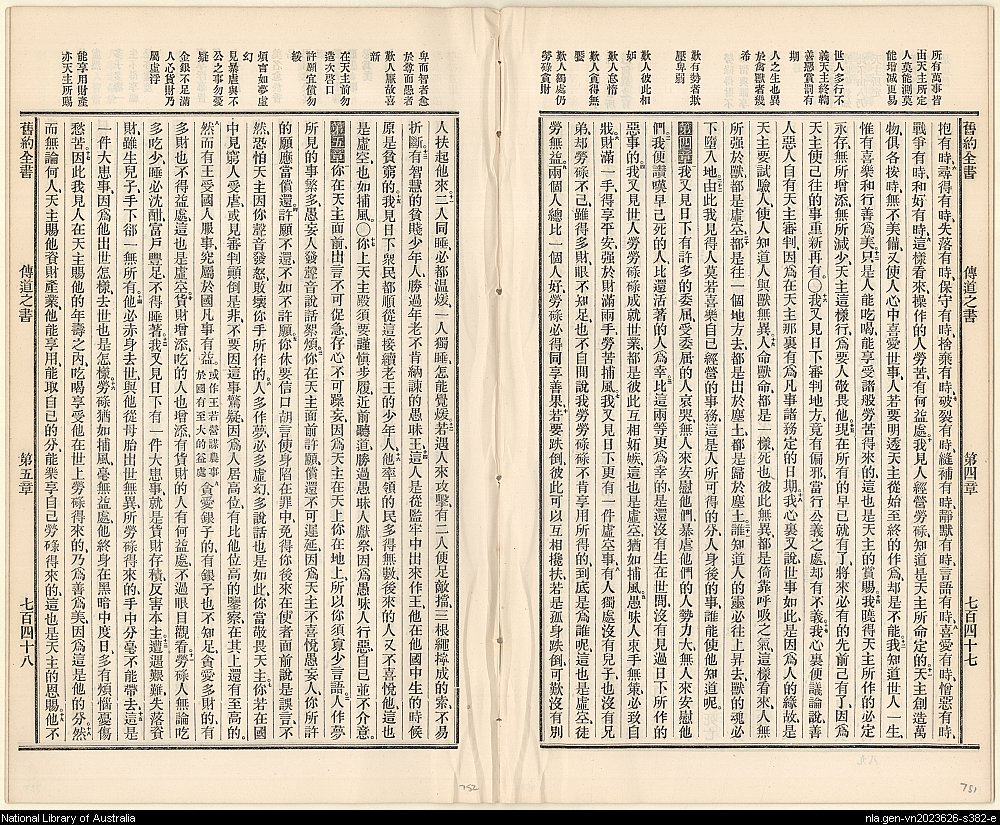 所有萬事皆
由天主所定
人莫能測莫
能增減更易
世人多行不
義天主終鞫
善惡賞罰有
期
人之生也異
於禽獸者幾
希
歎有勢者欺
壓卑弱
歎人彼此相
妬
歎人怠惰
歎人貪得無
饜
歎人獨處仍
勞碌貪財
舊約全書
傳道之書
第四章
七百四十七
抱有時尋得有時失落有時保守有時捨棄有時破裂有時縫補有時靜默有時言語有時喜愛有時憎惡有時
戰爭有時和好有時這樣看來操作的人勞苦有何益處我見人經營勞碌知道是天主所命定的天主創造萬
物俱各按時無不美備又使人心中喜愛世事人若要明透天主從始至終的作為却是不能我知道世人一生
惟有喜樂和行善為美只是人能吃喝能享受諸般勞苦得來的這也是天主的賞賜我曉得天主所作的必定
永存無所增添無所減少天主這樣行為要人敬畏他現在所有的早已就有了將來必有的先前已有了因為
天主使已往的事重新再有〇我又見日下審判地方竟有偏邪當行公義之處却有不義我心裏便議論說善
人惡人自有天主審判因為在天主那裏有為凡事諸務定的日期我心裏又說世事如此是因為人的緣故是
天主要試驗人使人知道人與獸無異人命獸命都是一樣死也彼此無異都是倚靠呼吸之氣這樣看來人無
所強於獸都是虛空都是往一個地方去都是出於塵土都是歸於塵土誰知道人的靈必往上昇去獸的魂必
下墮入地由此我見得人莫若喜樂自己經營的事務這是人所可得的分人身後的事誰能使他知道呢
第四章我又見日下有許多的委屈受委屈的人哀哭無人來安慰他們暴虐他們的人勢力大無人來安慰他
們我便讚嘆早已死的人比還活著的人為幸比這兩等更為幸的是還沒有生在世間沒有見過日下所作的
惡事的我又見世人勞勞碌碌成就世業都是彼此互相妬嫉這也是虛空猶如捕風愚昧人束手無策必致自
戕財滿一手得享平安強於財滿兩手勞苦捕風我又見日下更有一件虛空事有人獨處沒有兒子也沒有兄
弟却勞碌不已雖得多財眼不知足也不自問說我勞勞碌碌不肯享用所得的到底是為誰呢這也是虛空徒
勞無益兩個人總比一個人好勞碌必得同享善果若要跌倒彼此可以互相攙扶若是孤身跌倒可歎沒有別
卑而智者愈
於尊而愚者
歎人厭故喜
新
在天主前勿
造次啓口
許願宜償勿
緩
煩言如夢虛
幻
見暴虐與不
公之事勿憂
疑
金銀不足滿
人心貨財乃
屬虛浮
能享用財產
亦天主所賜
人扶起他來二人同睡必都溫煖一人獨睡怎能覺煖若遇人來攻擊有二人便足敵擋三根繩擰成的索不易
折斷有智慧的貧賤少年人勝過年老不肯納諫的愚昧王這人是從監牢中出來作王他在他國中生的時候
原是貧窮的我見日下衆民都順從這接續老王的少年人他率領的民多得無數後來的人又不喜悅他這也
是虛空也如捕風〇你上天主殿須要謹慎步履近前聽道勝過愚昧人獻祭因為愚昧人行惡自己並不介意
第五章你在天主面前出言不可促急存心不可躁妄因為天主在天上你在地上所以你須寡少言語人作夢
所見的事繁多愚妄人發聲音說話絮煩你在天主面前許願償還不可遲延因為天主不喜悅愚妄人你所許
的願應當償還許願不還不如不許願你休要信口胡言使身陷在罪中免得你後來在使者面前說是誤言不
然恐怕天主因你聲音發怒敗壞你手所作的人多作夢必多虛幻多說話也是如此你當敬畏天主你若在國
中見窮人受虐或見審判顛倒是非不要因這事驚疑因為人居高位有比他位高的鑒察在其上還有至高的
然而有王受國人服事究屬於國凡事有益或作王若營謀農事於國有至大的益處貪愛銀子的有銀子也不知足貪愛多財的有
多財也不得益處這也是虛空貨財增添吃的人也增添有貨財的人有何益處不過眼目觀看勞碌人無論吃
多吃少睡必沈酣富戶豐足不得睡著我又見日下有一件大患事就是貨財存積反害本主遭遇艱難失落貲
財雖生兒子手下卻一無所有他必赤身去世與他從母胎出世無異所勞碌得來的手中分毫不能帶去這是
一件大患事因為他出世怎樣去世也是怎樣勞碌猶如捕風毫無益處他終身在黑暗中度日多有煩惱憂傷
愁苦因此我見人在天主賜他的年壽之內吃喝享受他在世上勞碌得來的乃為善為美因為這是他的分然
而無論何人天主賜他貲財產業他能享用能取自己的分能樂享自己勞碌得來的這也是天主的恩賜他不
舊約全書
傳道之書
第五章
七百四十八
752
751
National Library of Australia
nla.gen-vn2023626-s382-e